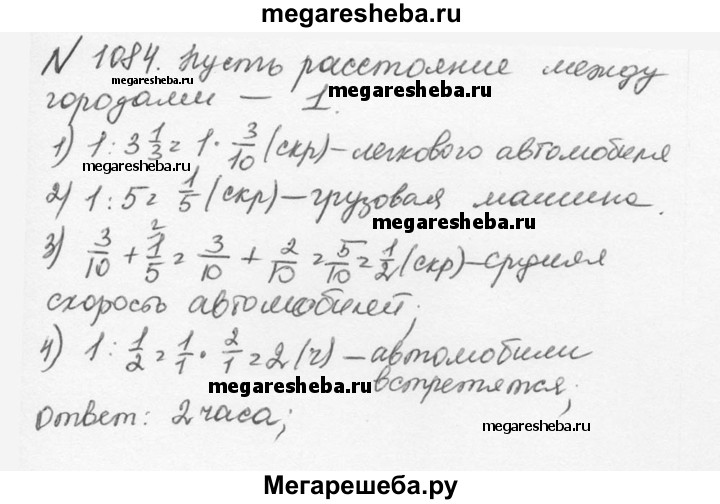 megaresheba.ru
N 1084. Пусть расстояние между
megaresheba.ru
городами — 1.
megaresheba.ru
1) 1 : 3 1/3 = 1 · 3/10 (скр) – легкового автомобиля
megaresheba.ru
2) 1 : 5 = 1/5 (скр) – грузовая машина.
megaresheba.ru
3) 3/10 + 1/5 ² = 3/10 + 2/10 = 5/10 = 1/2 (скр) – средняя
скорость автомобилей;
4) 1 : 1/2 = 1/1 · 2/1 = 2 (ч) – автомобили
megaresheba.ru
встретятся;
Ответ: 2 часа;
megaresheba.ru
Мегарешеба.ру